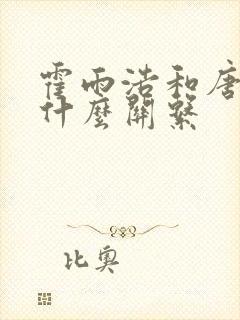 霍雨浩和唐
什麼關繫
比奧